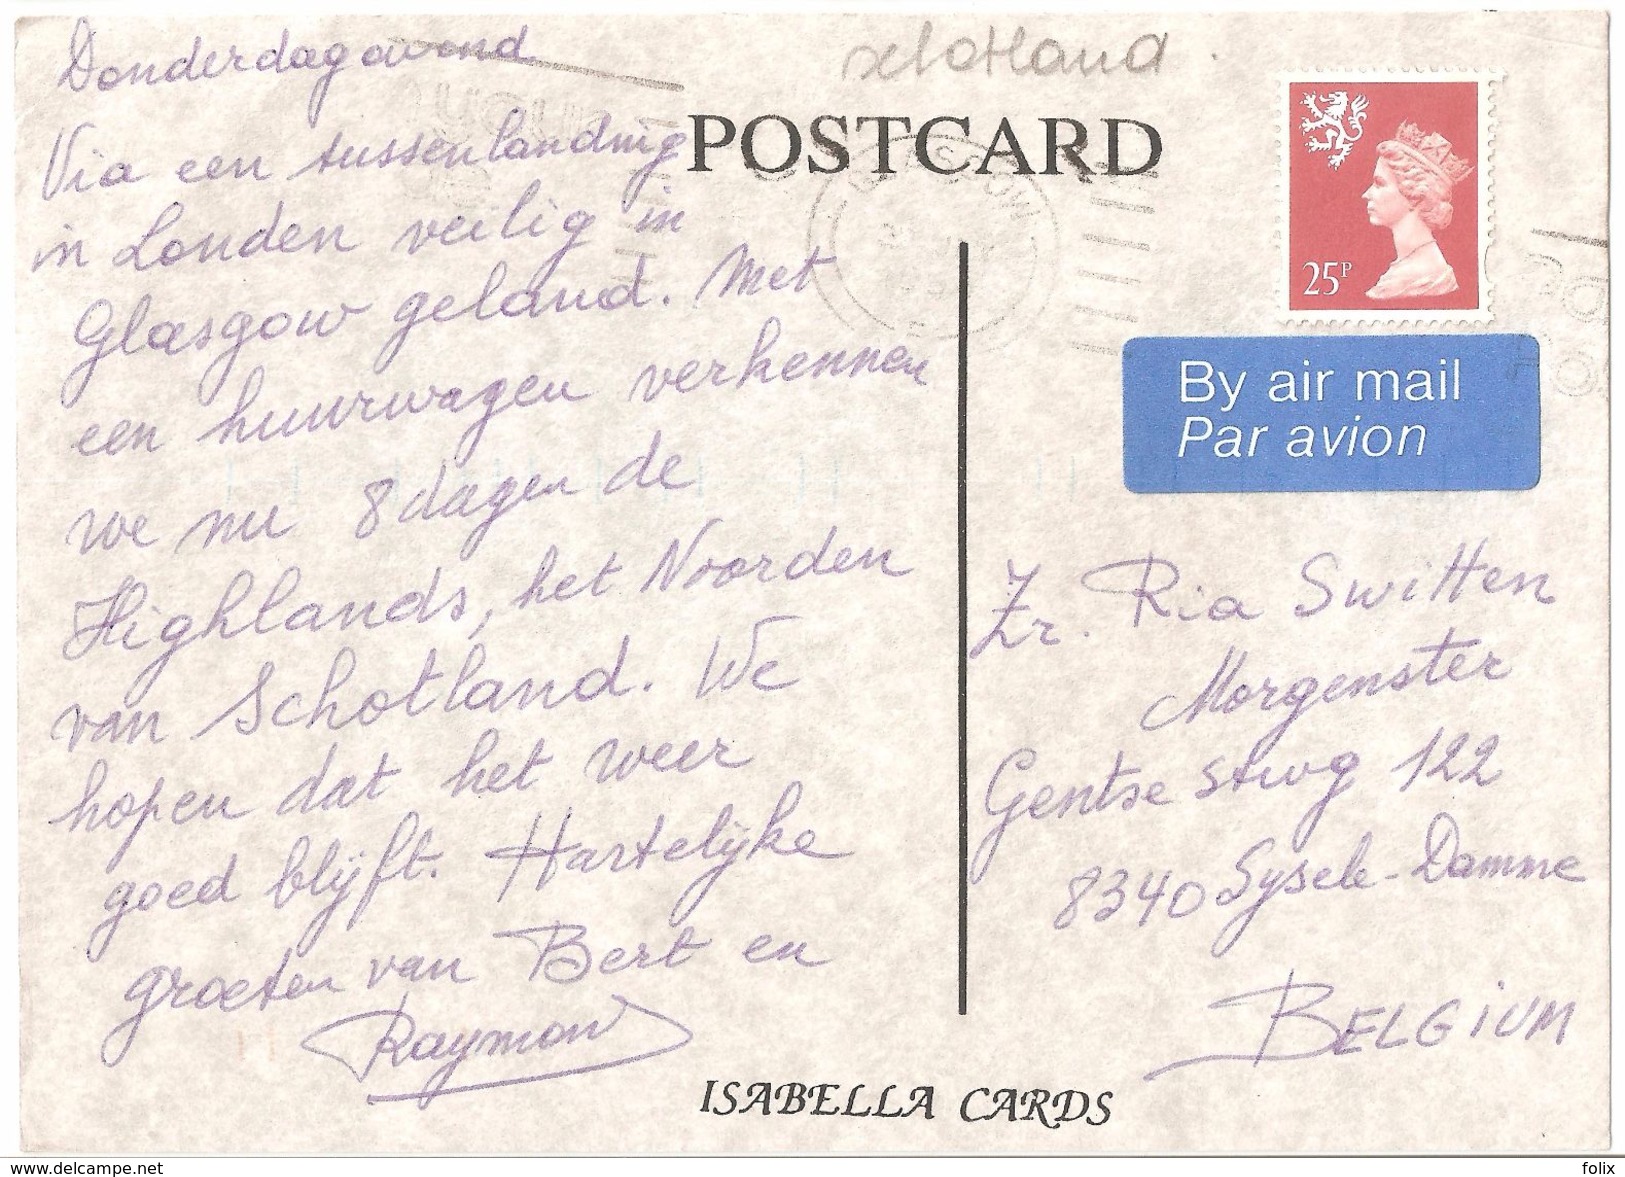 Donderdagavond
Via een tussenlanding
in Londen veilig in
Glasgow geland. Met
een huurwagen verkennen
we nu 8 dagen de
Highlands, het Noorden
van Schotland. We
hopen dat het weer
goed blijft. Hartelijke
groeten van Bert en
Raymond
schotland.
POSTCARD
GLASGOW
25P
By air mail
Par avion
Zr. Ria Switten
Morgenster
Gentse stwg 122
8340 Sysele-Damme
BELGIUM
ISABELLA CARDS
www.delcampe.net
folix